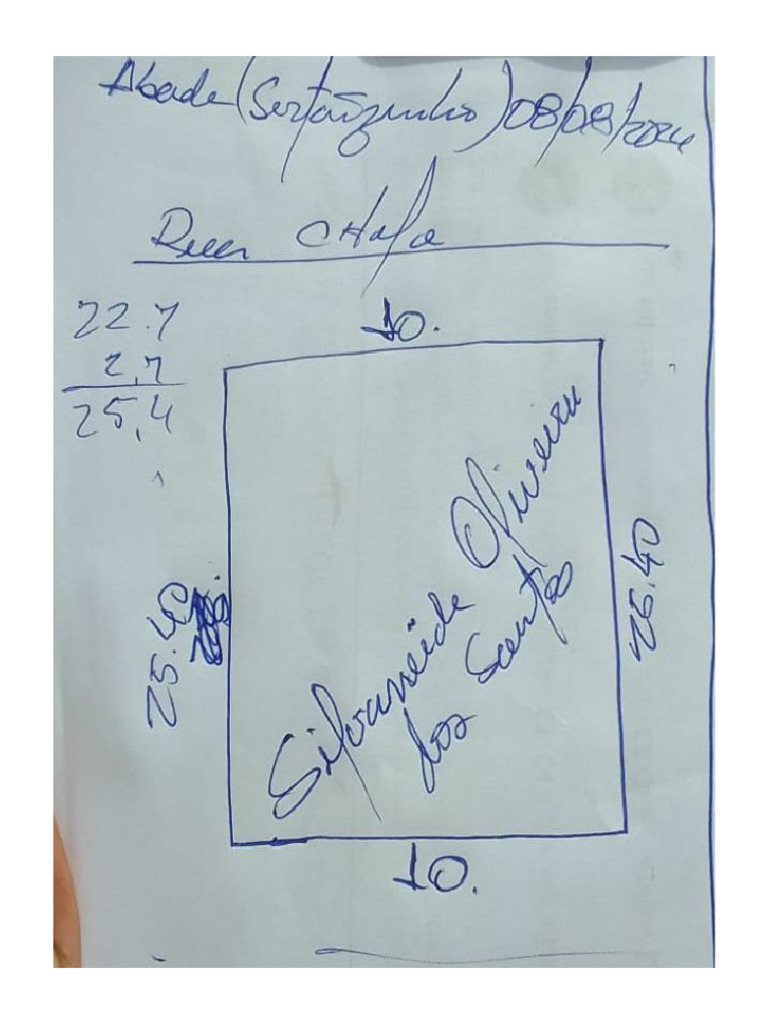 Abade (Sertãozinho) 08/08/2024
Rua
10.
22.7
2,7
25,4
25.40
25.40
Silvaneide Oliveira
dos Santos
10.